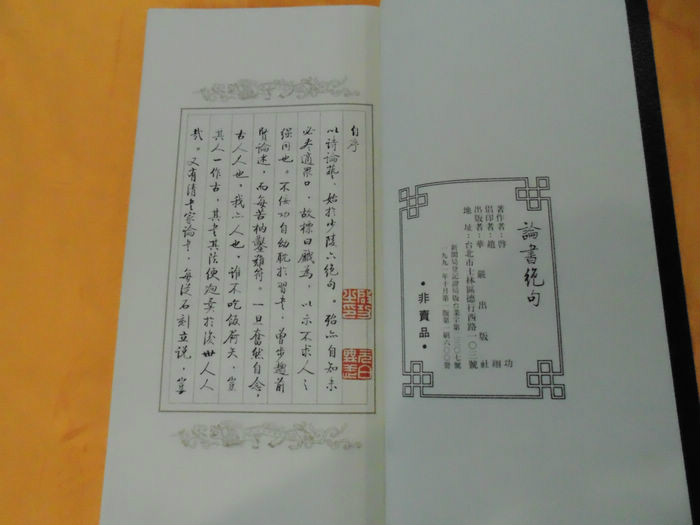 論書絕句
著作者：啓功
倡印者：趙翔
出版者：華嚴出版社
地址：台北市士林區德行西路一〇三號
新聞局登記證局版台業字第三三〇七號
一九九一年十月第一版第一刷六〇〇冊
•非賣品•
自序
以詩論藝，始於少陵六絕句。殆亦自知未
必盡適眾口，故標曰戲為，以示不求人之
強同也。不佞功自幼耽於習書，曾步趨前
賢論述，而每苦枘鑿難符。一旦奮然自念，
古人人也，我亦人也，誰不吃飯荷天，豈
其人一作古，其書其法便迥異於後世人人
哉。又有清書家論書，每從石刻立說，豈